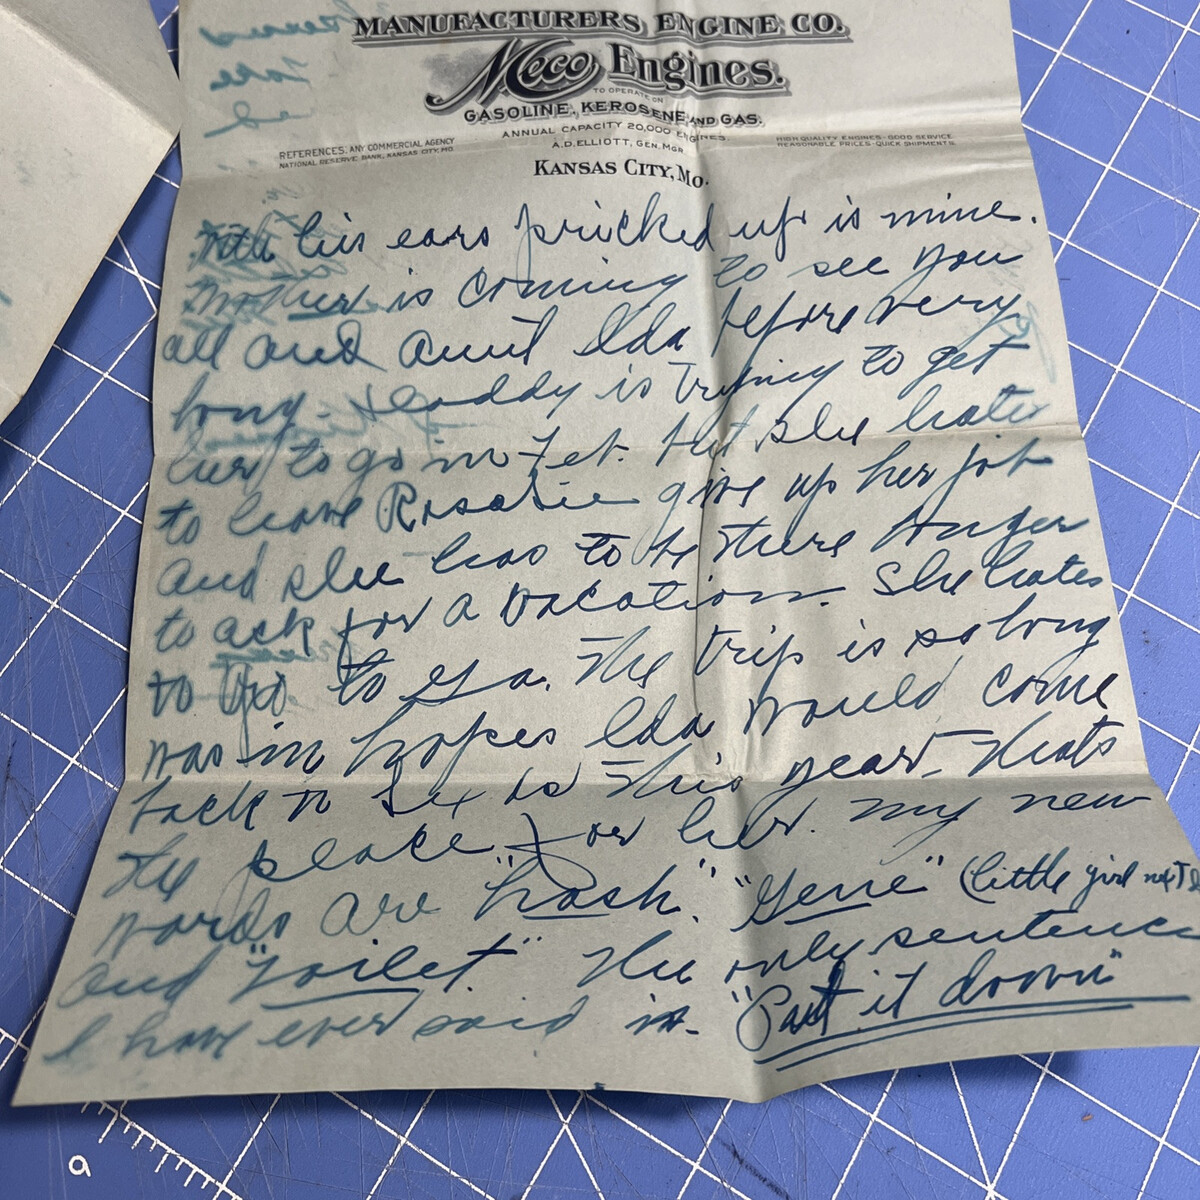 MANUFACTURERS ENGINE CO.
Meco Engines.
TO OPERATE ON
GASOLINE, KEROSENE AND GAS.
ANNUAL CAPACITY 20,000 ENGINES.
REFERENCES. ANY COMMERCIAL AGENCY
NATIONAL RESERVE BANK, KANSAS CITY, MO.
A.D. ELLIOTT, GEN. MGR.
HIGH QUALITY ENGINES - GOOD SERVICE
REASONABLE PRICES - QUICK SHIPMENTS.
KANSAS CITY, MO.
with his ears pricked up is mine.
Mother is coming to see you
all and aunt Ida before very
long - Daddy is trying to get
her to go in Feb. but she hates
to leave Rosalie give up her job
and she has to be there longer
to ask for a vacation. She hates
to go to Ga. The trip is so long
was in hopes Ida would come
back to this year. Thats
the place for her. My new
words are "hash". "Gene" (little girl next
and "Toilet." The only sentence
I have ever said is - "Put it down"
9